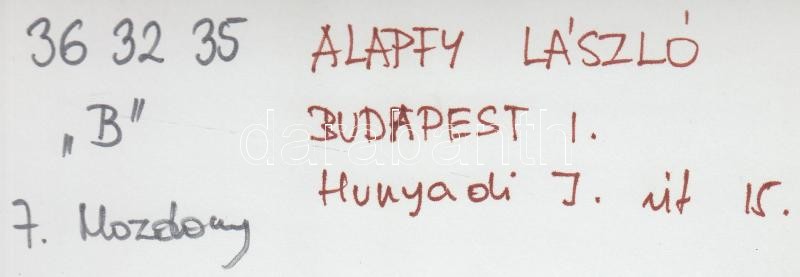 36 32 35
„B”
7. Mozdony
ALAPFY LÁSZLÓ
BUDAPEST I.
Hunyadi J. út 15.
darabanth